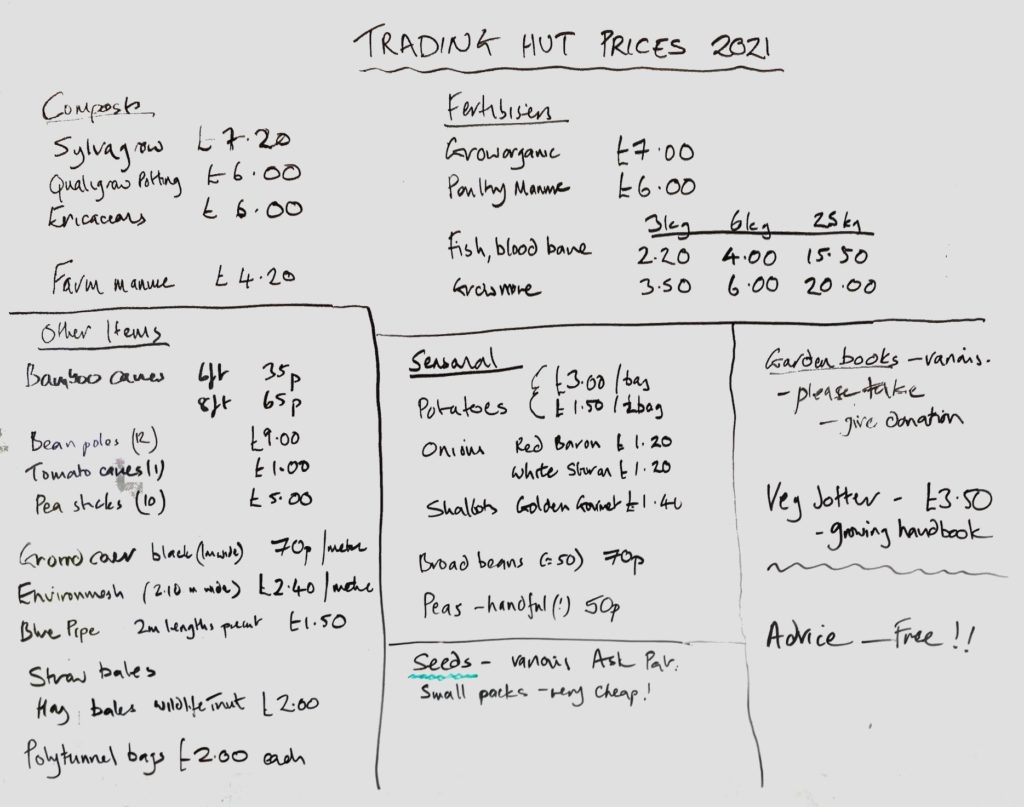 TRADING HUT PRICES 2021
Composts
Sylvagrow £7.20
Qualigrow Potting £6.00
Ericaceous £6.00
Farm manure £4.20
Fertilisiers
Groworganic £7.00
Poultry Manure £6.00
3kg 6kg 25kg
Fish, blood bone 2.20 4.00 15.50
Growmore 3.50 6.00 20.00
Other Items
Bamboo canes 6ft 35p
8ft 65p
Bean poles (12) £9.00
Tomato canes (1) £1.00
Pea sticks (10) £5.00
Ground cover black (1m wide) 70p /metre
Environmesh (2.10 m wide) £2.40 /metre
Blue Pipe 2m lengths precut £1.50
Straw bales
Hay bales Wildlife Trust £2.00
Polytunnel bags £2.00 each
Seasonal
Potatoes £3.00 /bag
£1.50 /½bag
Onions Red Baron £1.20
White Sturon £1.20
Shallots Golden Gourmet £1.40
Broad beans (=50) 70p
Peas - handful (!) 50p
Seeds - various, Ask Pat.
Small packs - very cheap!
Garden books - various.
- please take
- give donation
Veg Jotter - £3.50
- growing handbook
Advice - Free!!